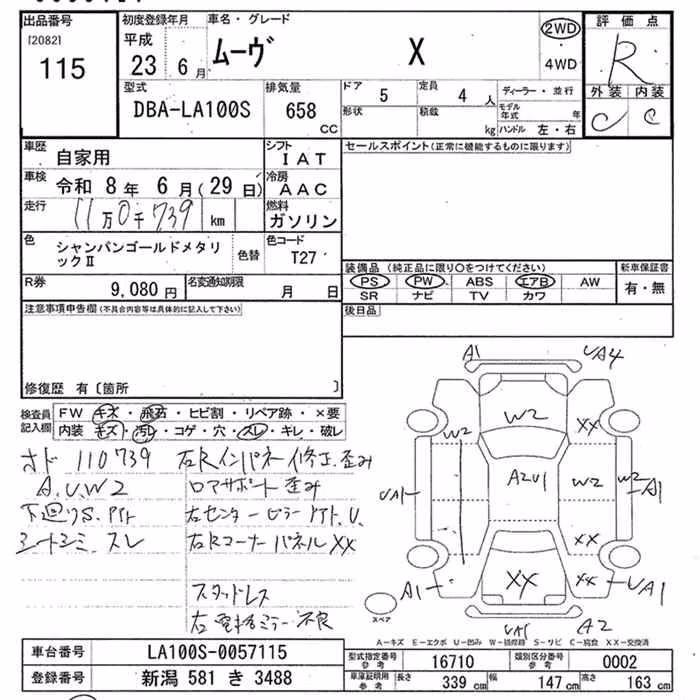 出品番号 初度登録年月 車名・グレード 評価点
[2082] 平成 ムーヴ X 2WD R
115 23 6月 4WD 外装 内装
型式 排気量 ドア 5 定員 4人 ディーラー・並行 C C
DBA-LA100S 658 cc 形状 積載 kg モデル年式 年 ハンドル 左・右
車歴 自家用 シフト IAT セールスポイント(正常に機能するものに限ります)
車検 令和 8年 6月(29日) 冷房 AAC
走行 11万0千739 km 燃料 ガソリン
色 シャンパンゴールドメタリックⅡ 色替 色コード T27
装備品 (純正品に限り○をつけてください) 新車保証書
R券 9,080円 名変通知期限 月 日 PS PW ABS エアB AW 有・無
SR ナビ TV カワ
注意事項申告欄(不具合内容等は具体的に記入して下さい) 後日品
修復歴 有〔箇所 〕
検査員記入欄 FW キズ・飛石・ヒビ割・リペア跡・×要
内装 キズ・汚レ・コゲ・穴・スレ・キレ・破レ
オド 110739 右Rインパネ修正、歪み
A.U.W2 ロアサポート歪み
下廻りS. 右センターピラー U.
シートシミ.スレ 右RコーナーパネルXX
スタッドレス
右電格ミラー不良
A1 UA4
W2 XX
W2 A2U1 W2 W2
UA1 A1
XX
A1 XX XX UA1
スペア UA1 A2
A-キズ E-エクボ U-凹み W-補修跡 S-サビ C-腐食 XX-交換済
車台番号 LA100S-0057115 型式指定番号 参考 16710 類別区分番号 参考 0002
登録番号 新潟 581 き 3488 車庫証明用 参考 長さ 339cm 幅 147cm 高さ 163cm